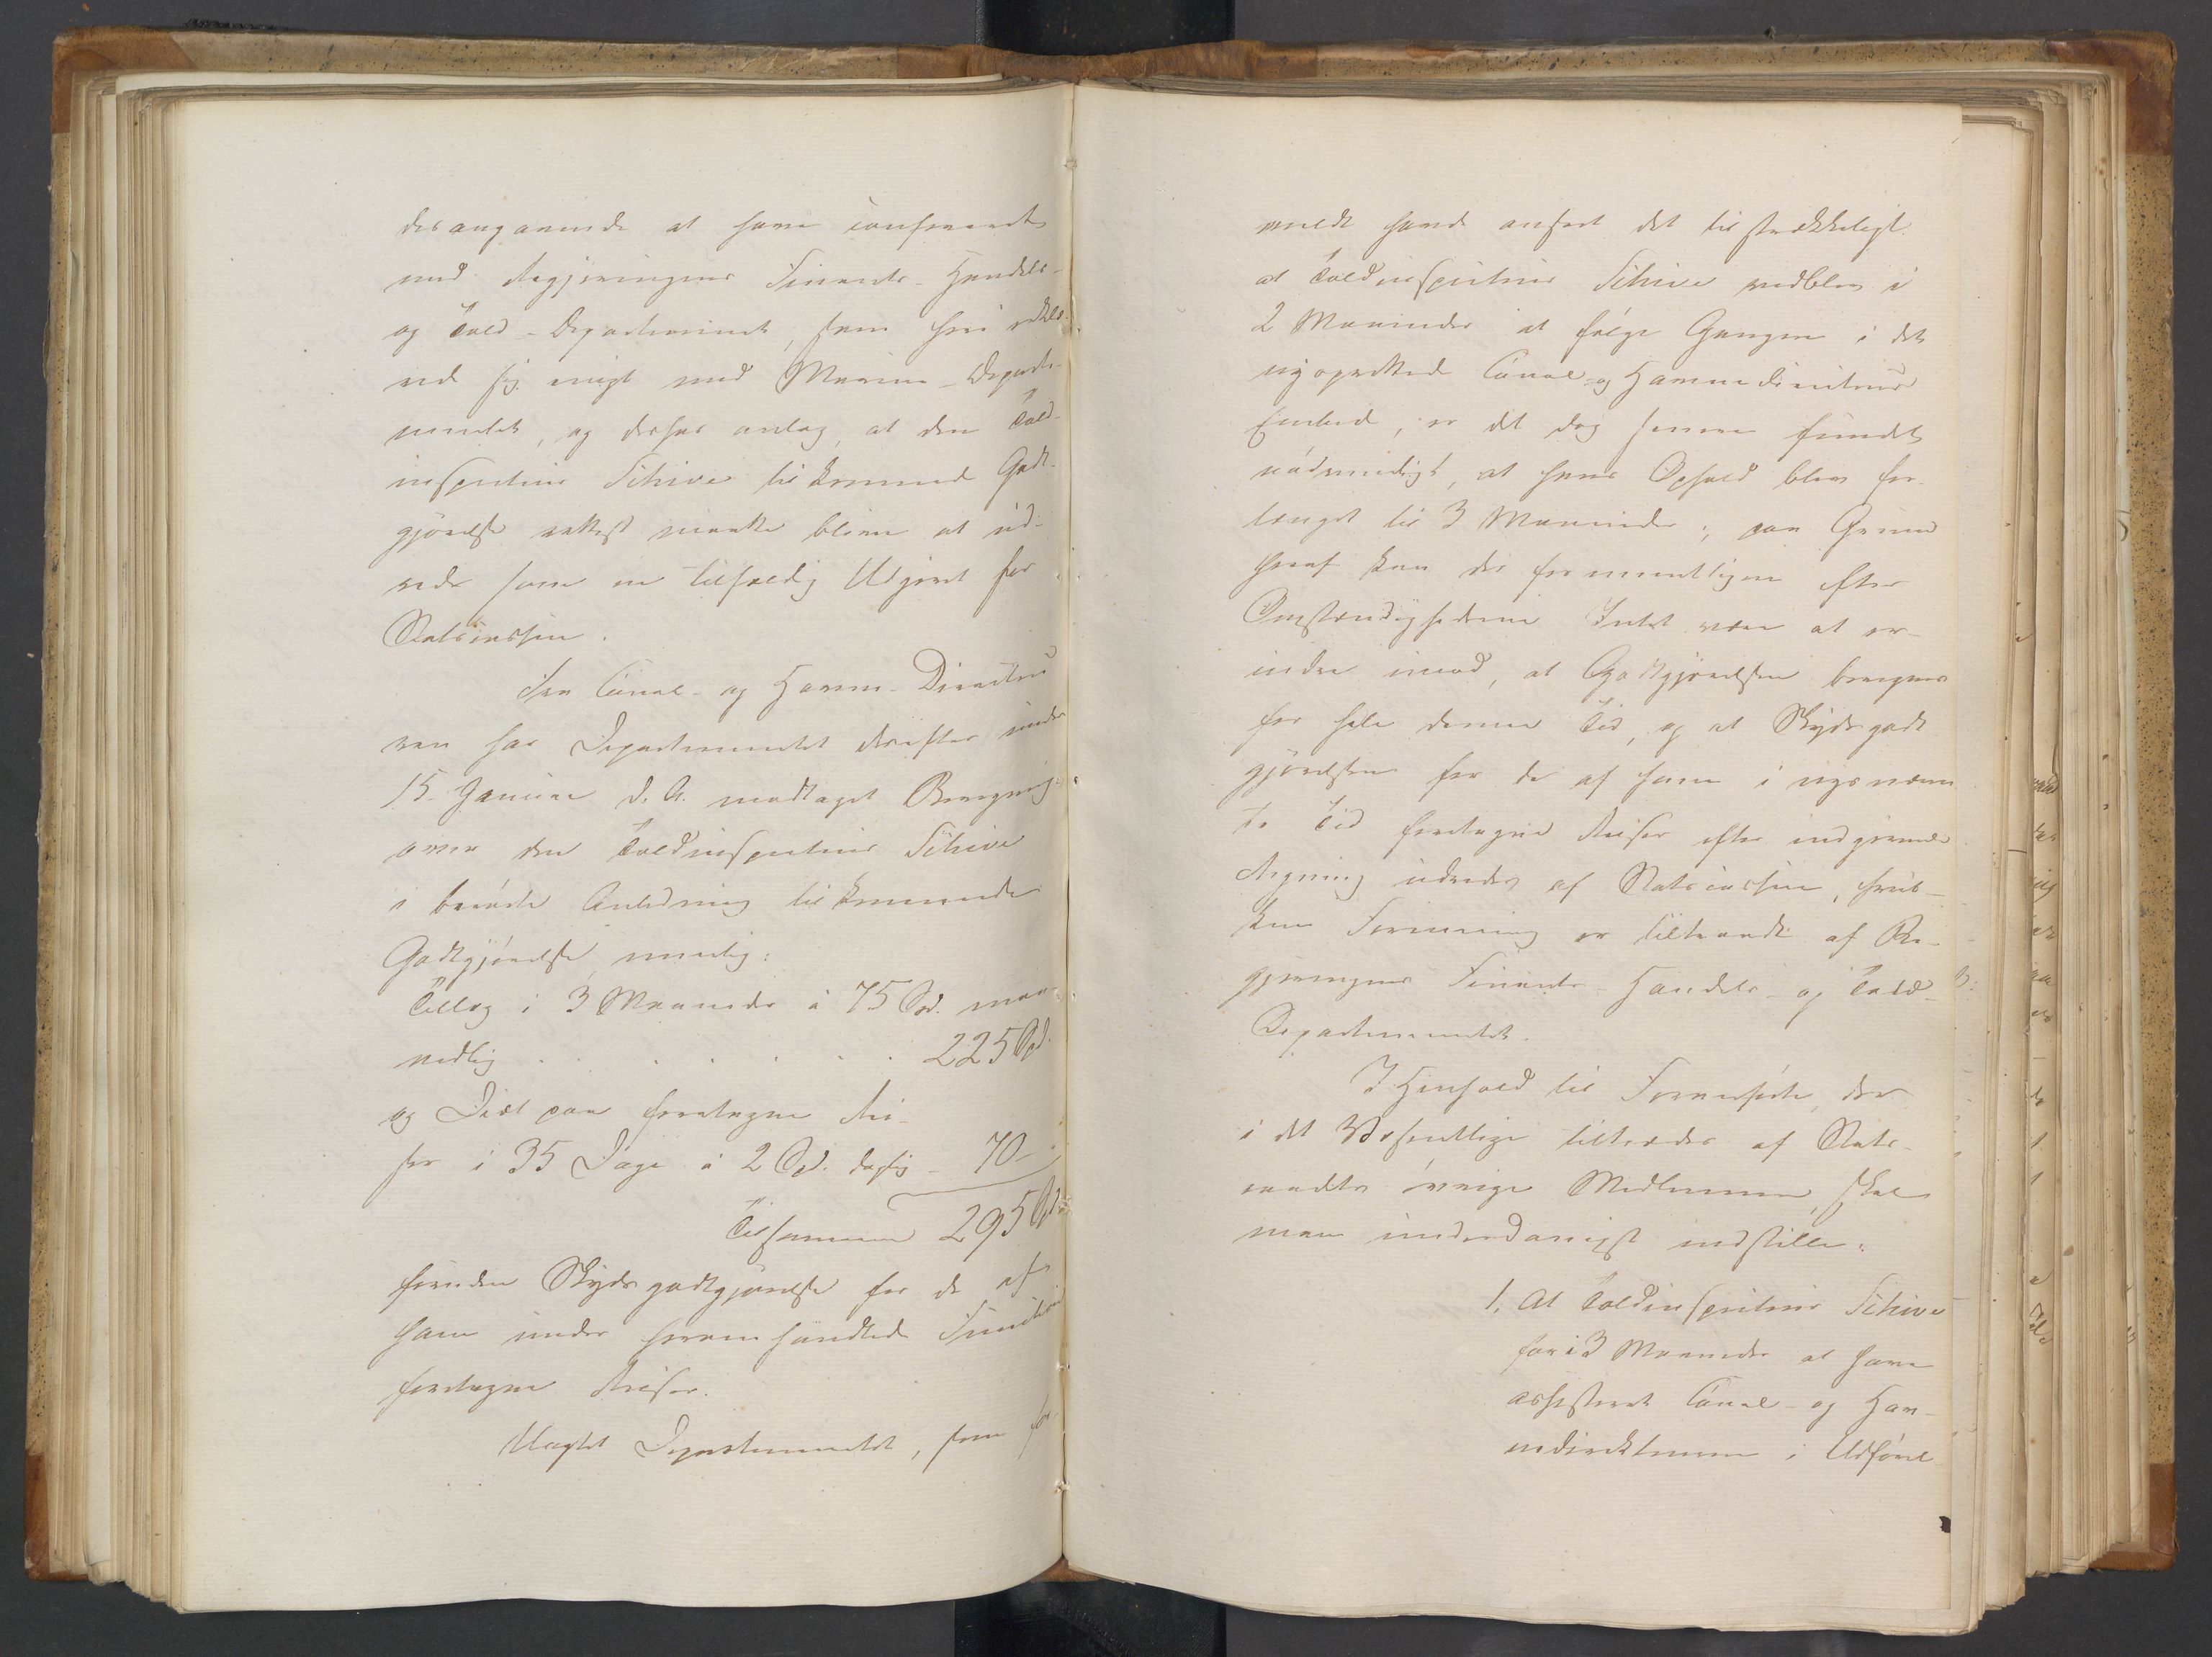 desangaaende at have confereret
med Regjeringens Finants- Handels-
og Told-Departement, som heri erklæ-
rede sig enigt med Marine-Departe-
mentet, og derhos antog, at den Told-
inspecteur Schive tilkommende Godt-
gjörelse rettest maatte blive at ud-
rede som en tilfældig Udgivt for
Statscassen.
Fra Canal- og Havne-Directeu-
ren har Departementet derefter under
15 Januar d. A. modtaget Beregning
over den Toldinspecteur Schive
i berörte Anledning tilkommende
Godtgjörelse, nemlig:
Tillæg i 3 Maaneder à 75 Spd. maa-
nedlig . . . . . . 225 Spd.
og Diæt paa foretagne Rei-
ser i 35 Dage à 2 Spd. daglig - 70 -
Tilsammen 295 Spd.
foruden Skydsgodtgjörelse for de af
ham under herommhandlede Function
foretagne Reiser.
Uagtet Departementet, som for-
meldt havde anseet det tilstrækkeligt
at Toldinspecteur Schive vedblev i
2 Maaneder at fölge Gangen i det
nyoprettede Canal- og Havnedirecteur
Embede, er det dog senere fundet
nödvendigt, at hans Ophold blev for-
længet til 3 Maaneder; paa Grund
heraf kan der formeentligen efter
Omstændighederne Intet være at er-
indre imod, at Godtgjörelsen beregnes
for hele denne Tid, og at Skydsgodt
gjörelsen for de af ham i nysnævn
te Tid foretagne Reiser efter indgivende
Regning udredes af Statscassen, hvil-
ken Formening er tiltraadt af Re-
gjeringens Finants- Handels- og Told-
Departementet.
I Henhold til Foranförte, der
i det Væsentlige tiltrædes af Stats-
raadets övrige Medlemmer, skal
man underdanigst indstille:
1, At Toldinspecteur Schive
for i 3 Maaneder at have
assisteret Canal- og Hav-
nedirekteuren i Udförel